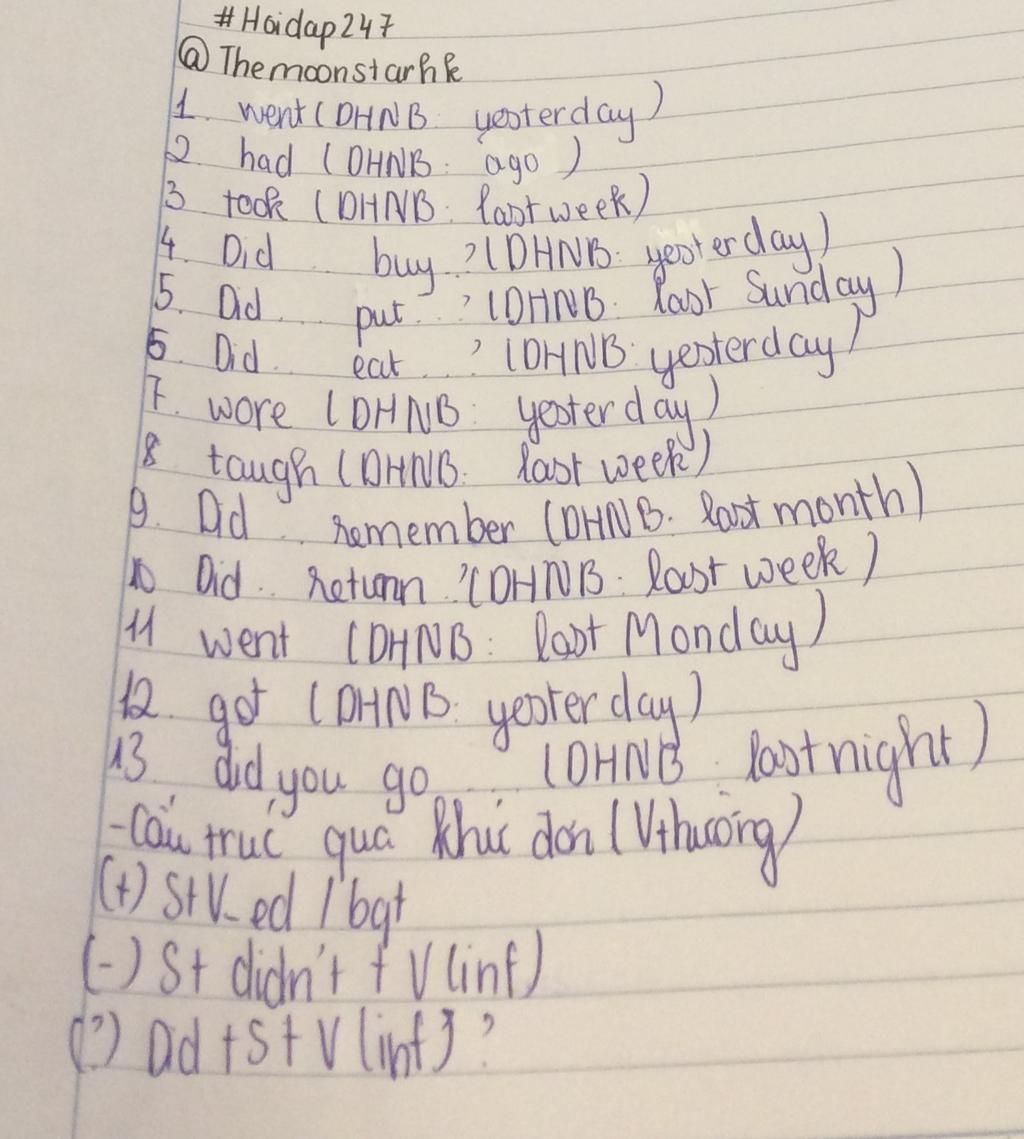 #Hoidap247
@Themoonstarhk
1. went (DHNB: yesterday)
2. had (DHNB: ago)
3 took (DHNB: last week)
4. Did ... buy ? (DHNB: yesterday)
5. Did.... put...? (DHNB: last Sunday)
6. Did.... eat...? (DHNB: yesterday)
7. wore (DHNB: yesterday)
8 taugh (DHNB: last week)
9. Did ... remember (DHNB: last month)
10 Did.. return ? (DHNB: last week)
11 went (DHNB: last Monday)
12. got (DHNB: yesterday)
13. did you go ..... (DHNB: last night)
-Cấu trúc quá khứ đơn (V thường)
(+) S+V_ed / bqt
(-) S+ didn't + V (inf)
(?) Did +S+ V (inf) ?